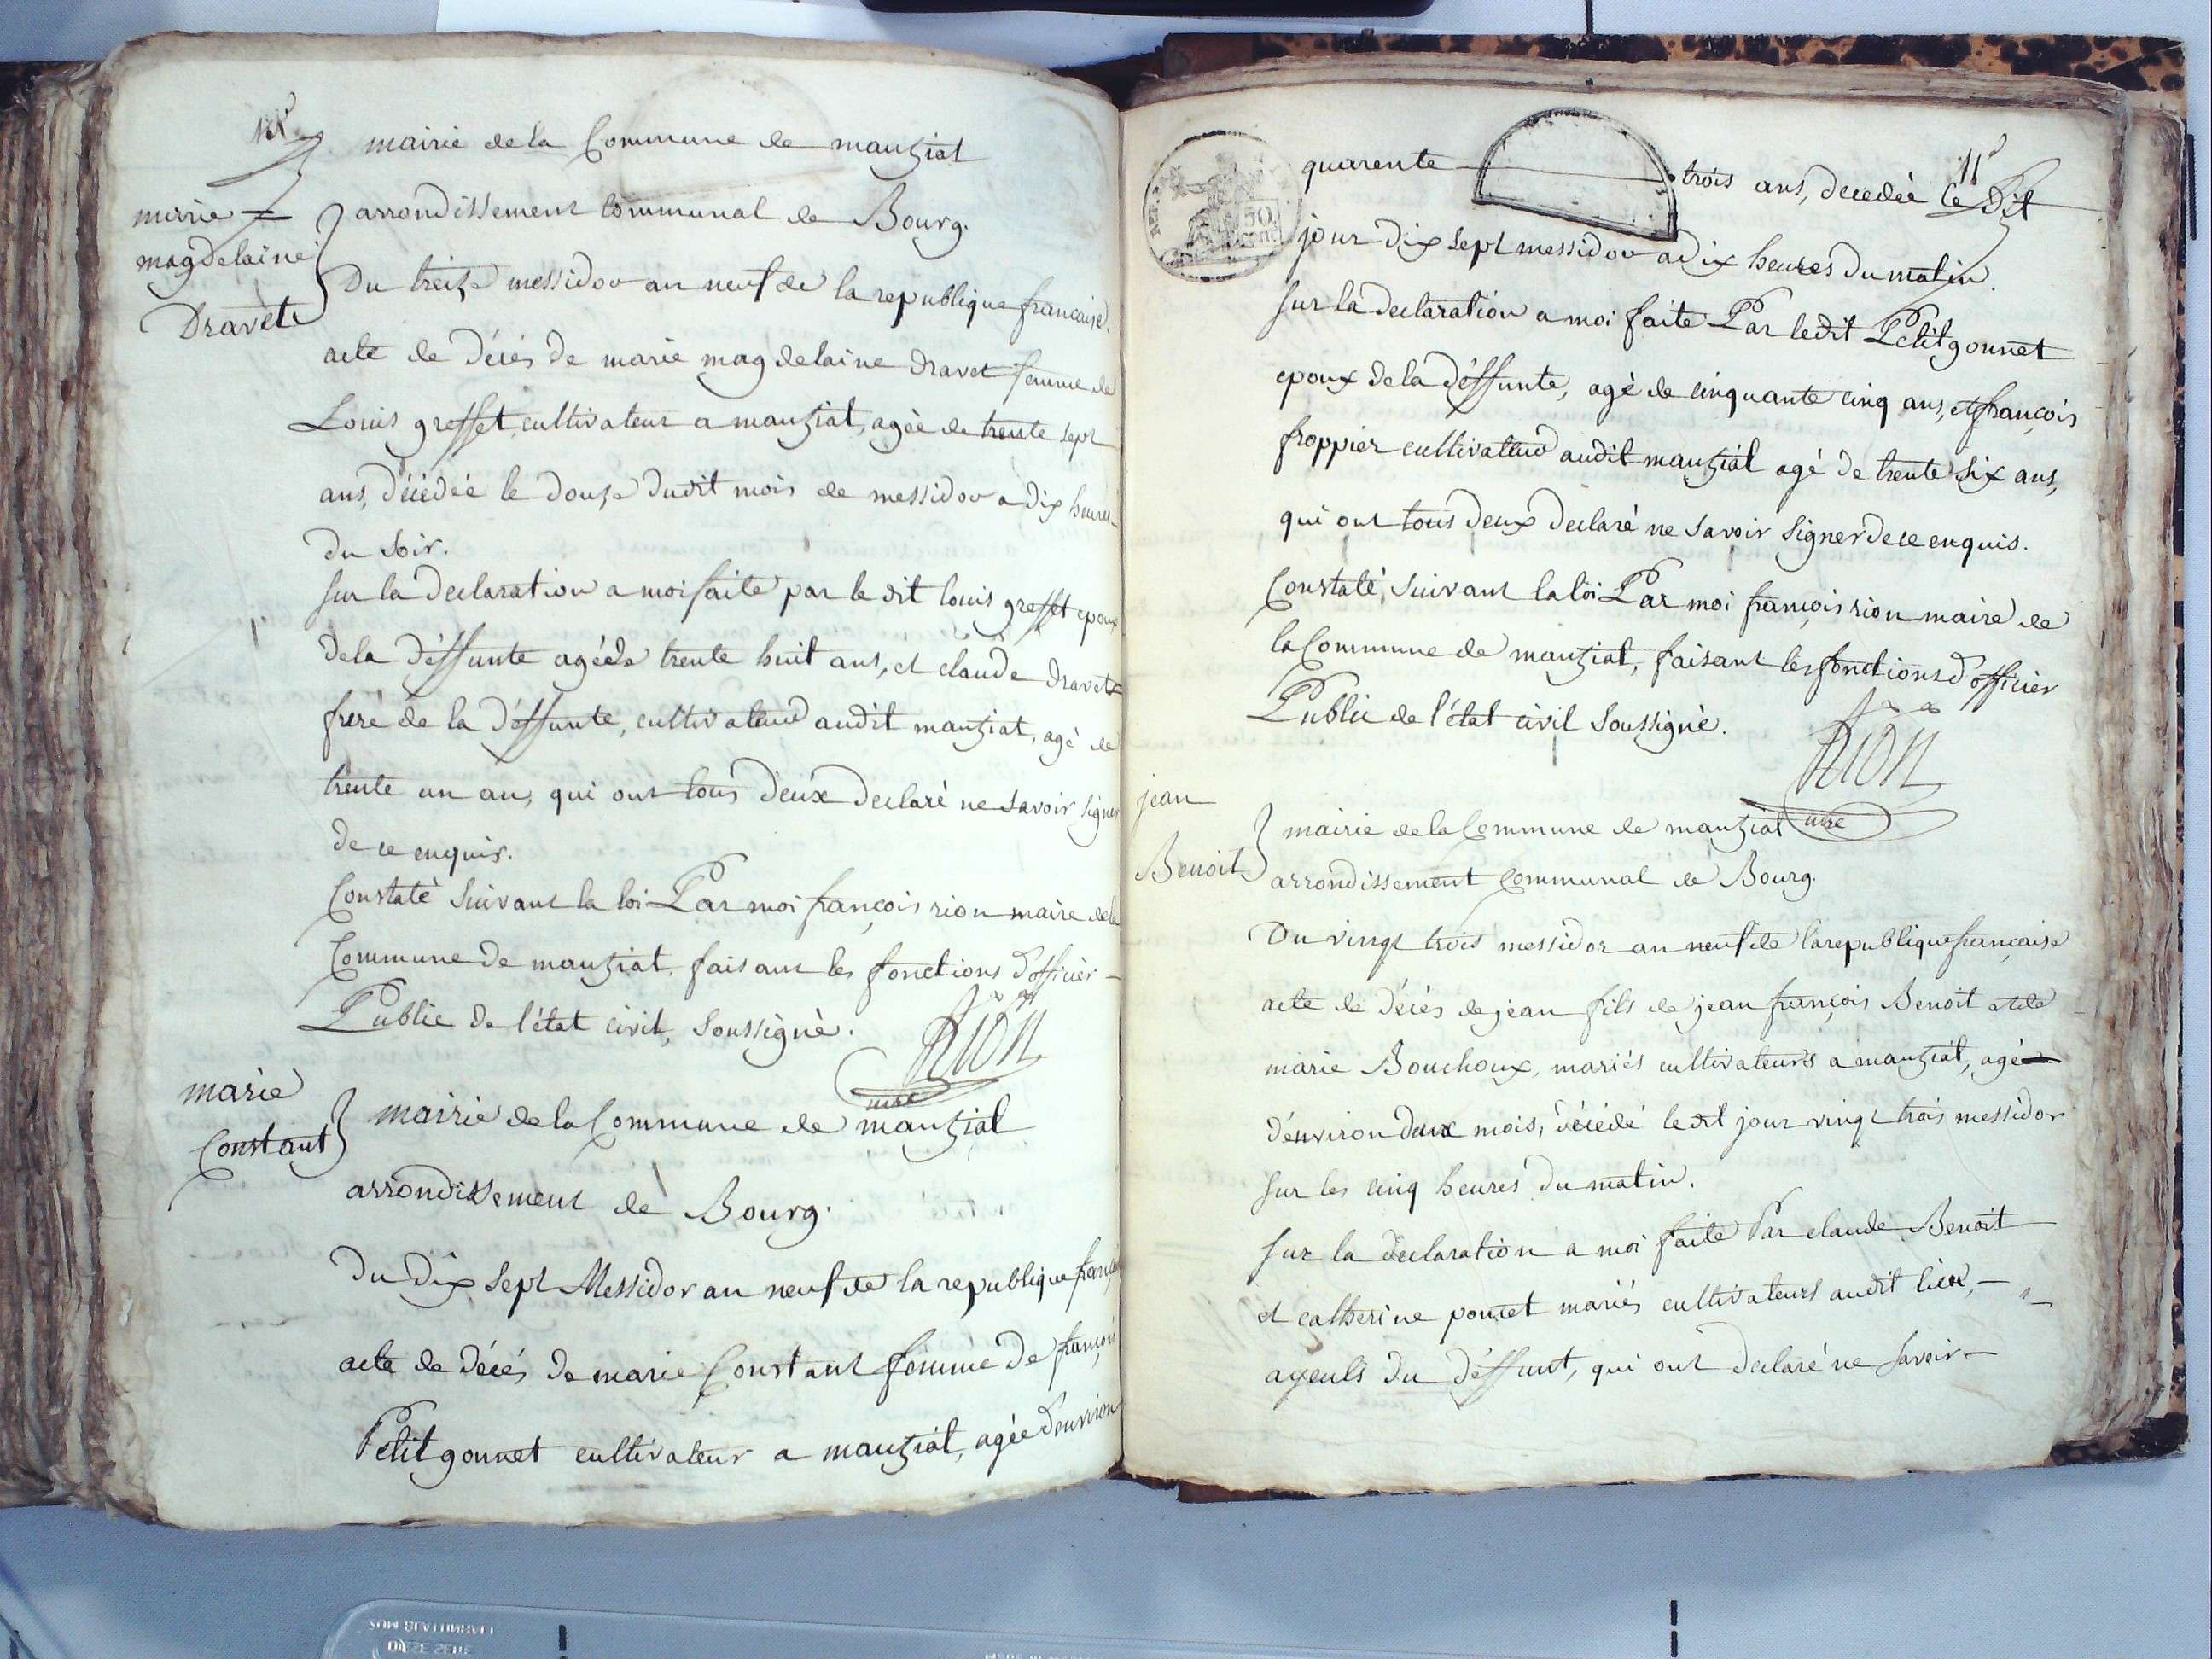 mairie de la Commune de mantziat
marie
magdelaine
Dravet
arrondissement Communal de Bourg.
Du treize messidor an neuf de la republique francaise.
acte de décés de marie magdelaine Dravet femme de
Louis greffet cultivateur a mantziat, agée de trente sept
ans, décédée le douze dudit mois de messidor a dix heures
du soir.
sur la declaration a moi faite par le dit louis greffet epoux
de la déffunte agé de trente huit ans, et claude Dravet
frere de la déffunte, cultivateur audit mantziat, agé de
trente un an, qui ont tous deux declaré ne savoir signer
de ce enquis.
Constaté suivant la loi Par moi françois rion maire de la
Commune de mantziat, faisant les fonctions d'officier
Public de l'état civil, soussigné.
Rion
mre
marie
Constant
mairie de la Commune de mantziat
arrondissement de Bourg.
Du dix sept Messidor an neuf de la republique françai
acte de décés de marie Constant femme de françois
Petitgonnet cultivateur a mantziat, agée d'environ
11
quarente trois ans, decedée le dit
50
jour dix sept messidor a dix heures du matin.
sur la declaration a moi faite Par ledit Petitgonnet
epoux de la déffunte, agé de cinquante cinq ans, et françois
froppier cultivateur audit mantziat agé de trente six ans,
qui ont tous deux declaré ne savoir signer de ce enquis.
Constaté, suivant la loi Par moi françois rion maire de
la Commune de mantziat, faisant les fonctions d'officier
Public de l'état civil soussigné.
Rion
mre
jean
Benoit
mairie de la Commune de mantziat
arrondissement Communal de Bourg.
Du vingt trois messidor an neuf de la republique française
acte de décés de jean fils de jean françois Benoit et de
marie Bouchoux, mariés cultivateurs a mantziat, agé
d'environ deux mois, décédé le dit jour vingt trois messidor
sur les cinq heures du matin.
sur la declaration a moi faite Par claude Benoit
et catherine ponet mariés cultivateurs audit lieu,
ayeuls du déffunt, qui ont declaré ne savoir